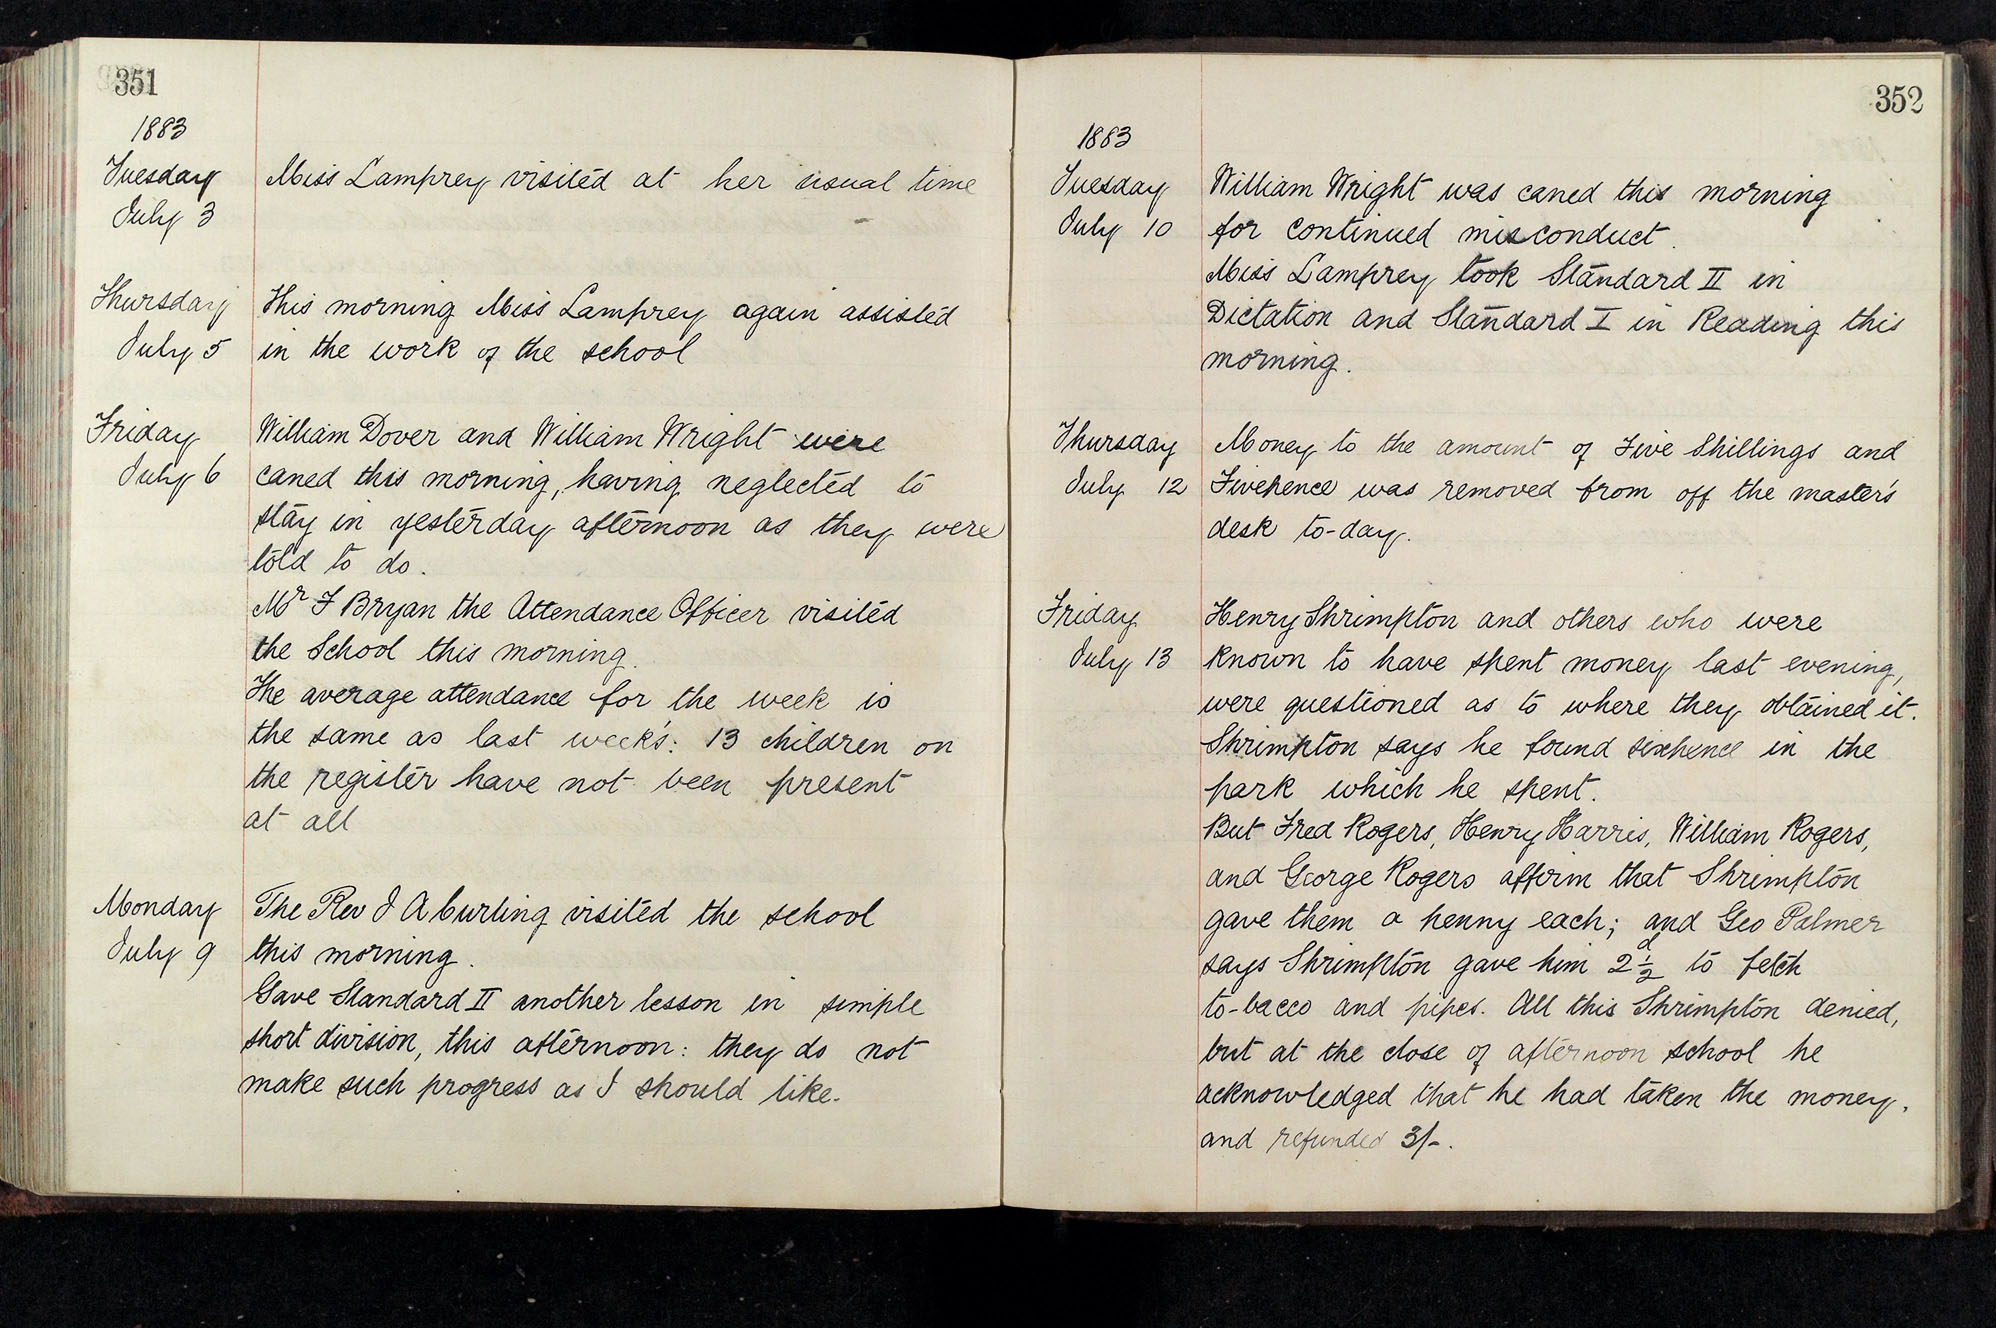 351
1883
Tuesday
July 3
Miss Lamprey visited at her usual time
Thursday
July 5
This morning Miss Lamprey again assisted
in the work of the school
Friday
July 6
William Dover and William Wright were
caned this morning, having neglected to
stay in yesterday afternoon as they were
told to do.
Mr F Bryan the Attendance Officer visited
the School this morning.
The average attendance for the week is
the same as last week's: 13 children on
the register have not been present
at all
Monday
July 9
The Rev J A Curling visited the school
this morning.
Gave Standard II another lesson in simple
short division, this afternoon: they do not
make such progress as I should like.
352
1883
Tuesday
July 10
William Wright was caned this morning
for continued misconduct.
Miss Lamprey took Standard II in
Dictation and Standard I in Reading this
morning.
Thursday
July 12
Money to the amount of Five Shillings and
Fivepence was removed from off the master's
desk to-day.
Friday
July 13
Henry Shrimpton and others who were
known to have spent money last evening,
were questioned as to where they obtained it.
Shrimpton says he found sixpence in the
park which he spent.
But Fred Rogers, Henry Harris, William Rogers,
and George Rogers affirm that Shrimpton
gave them a penny each; and Geo Palmer
says Shrimpton gave him 2½d to fetch
to-bacco and pipes. All this Shrimpton denied,
but at the close of afternoon school he
acknowledged that he had taken the money,
and refunded 3/-.